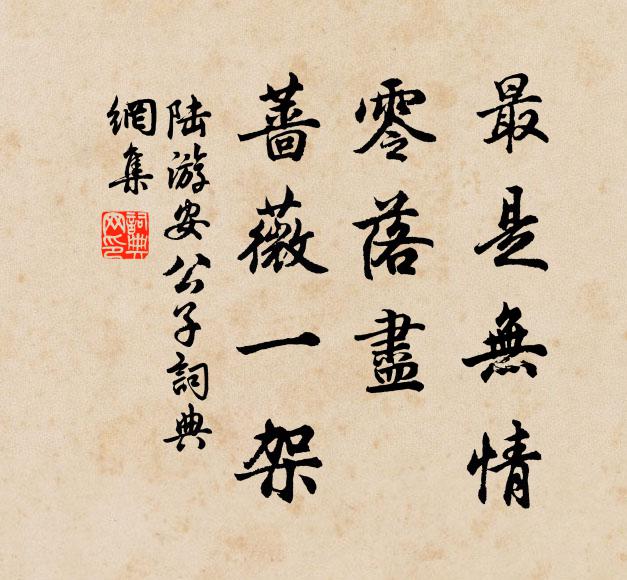 最是無情
零落盡
薔薇一架
陸游安公子詞典
網集
詞典網印